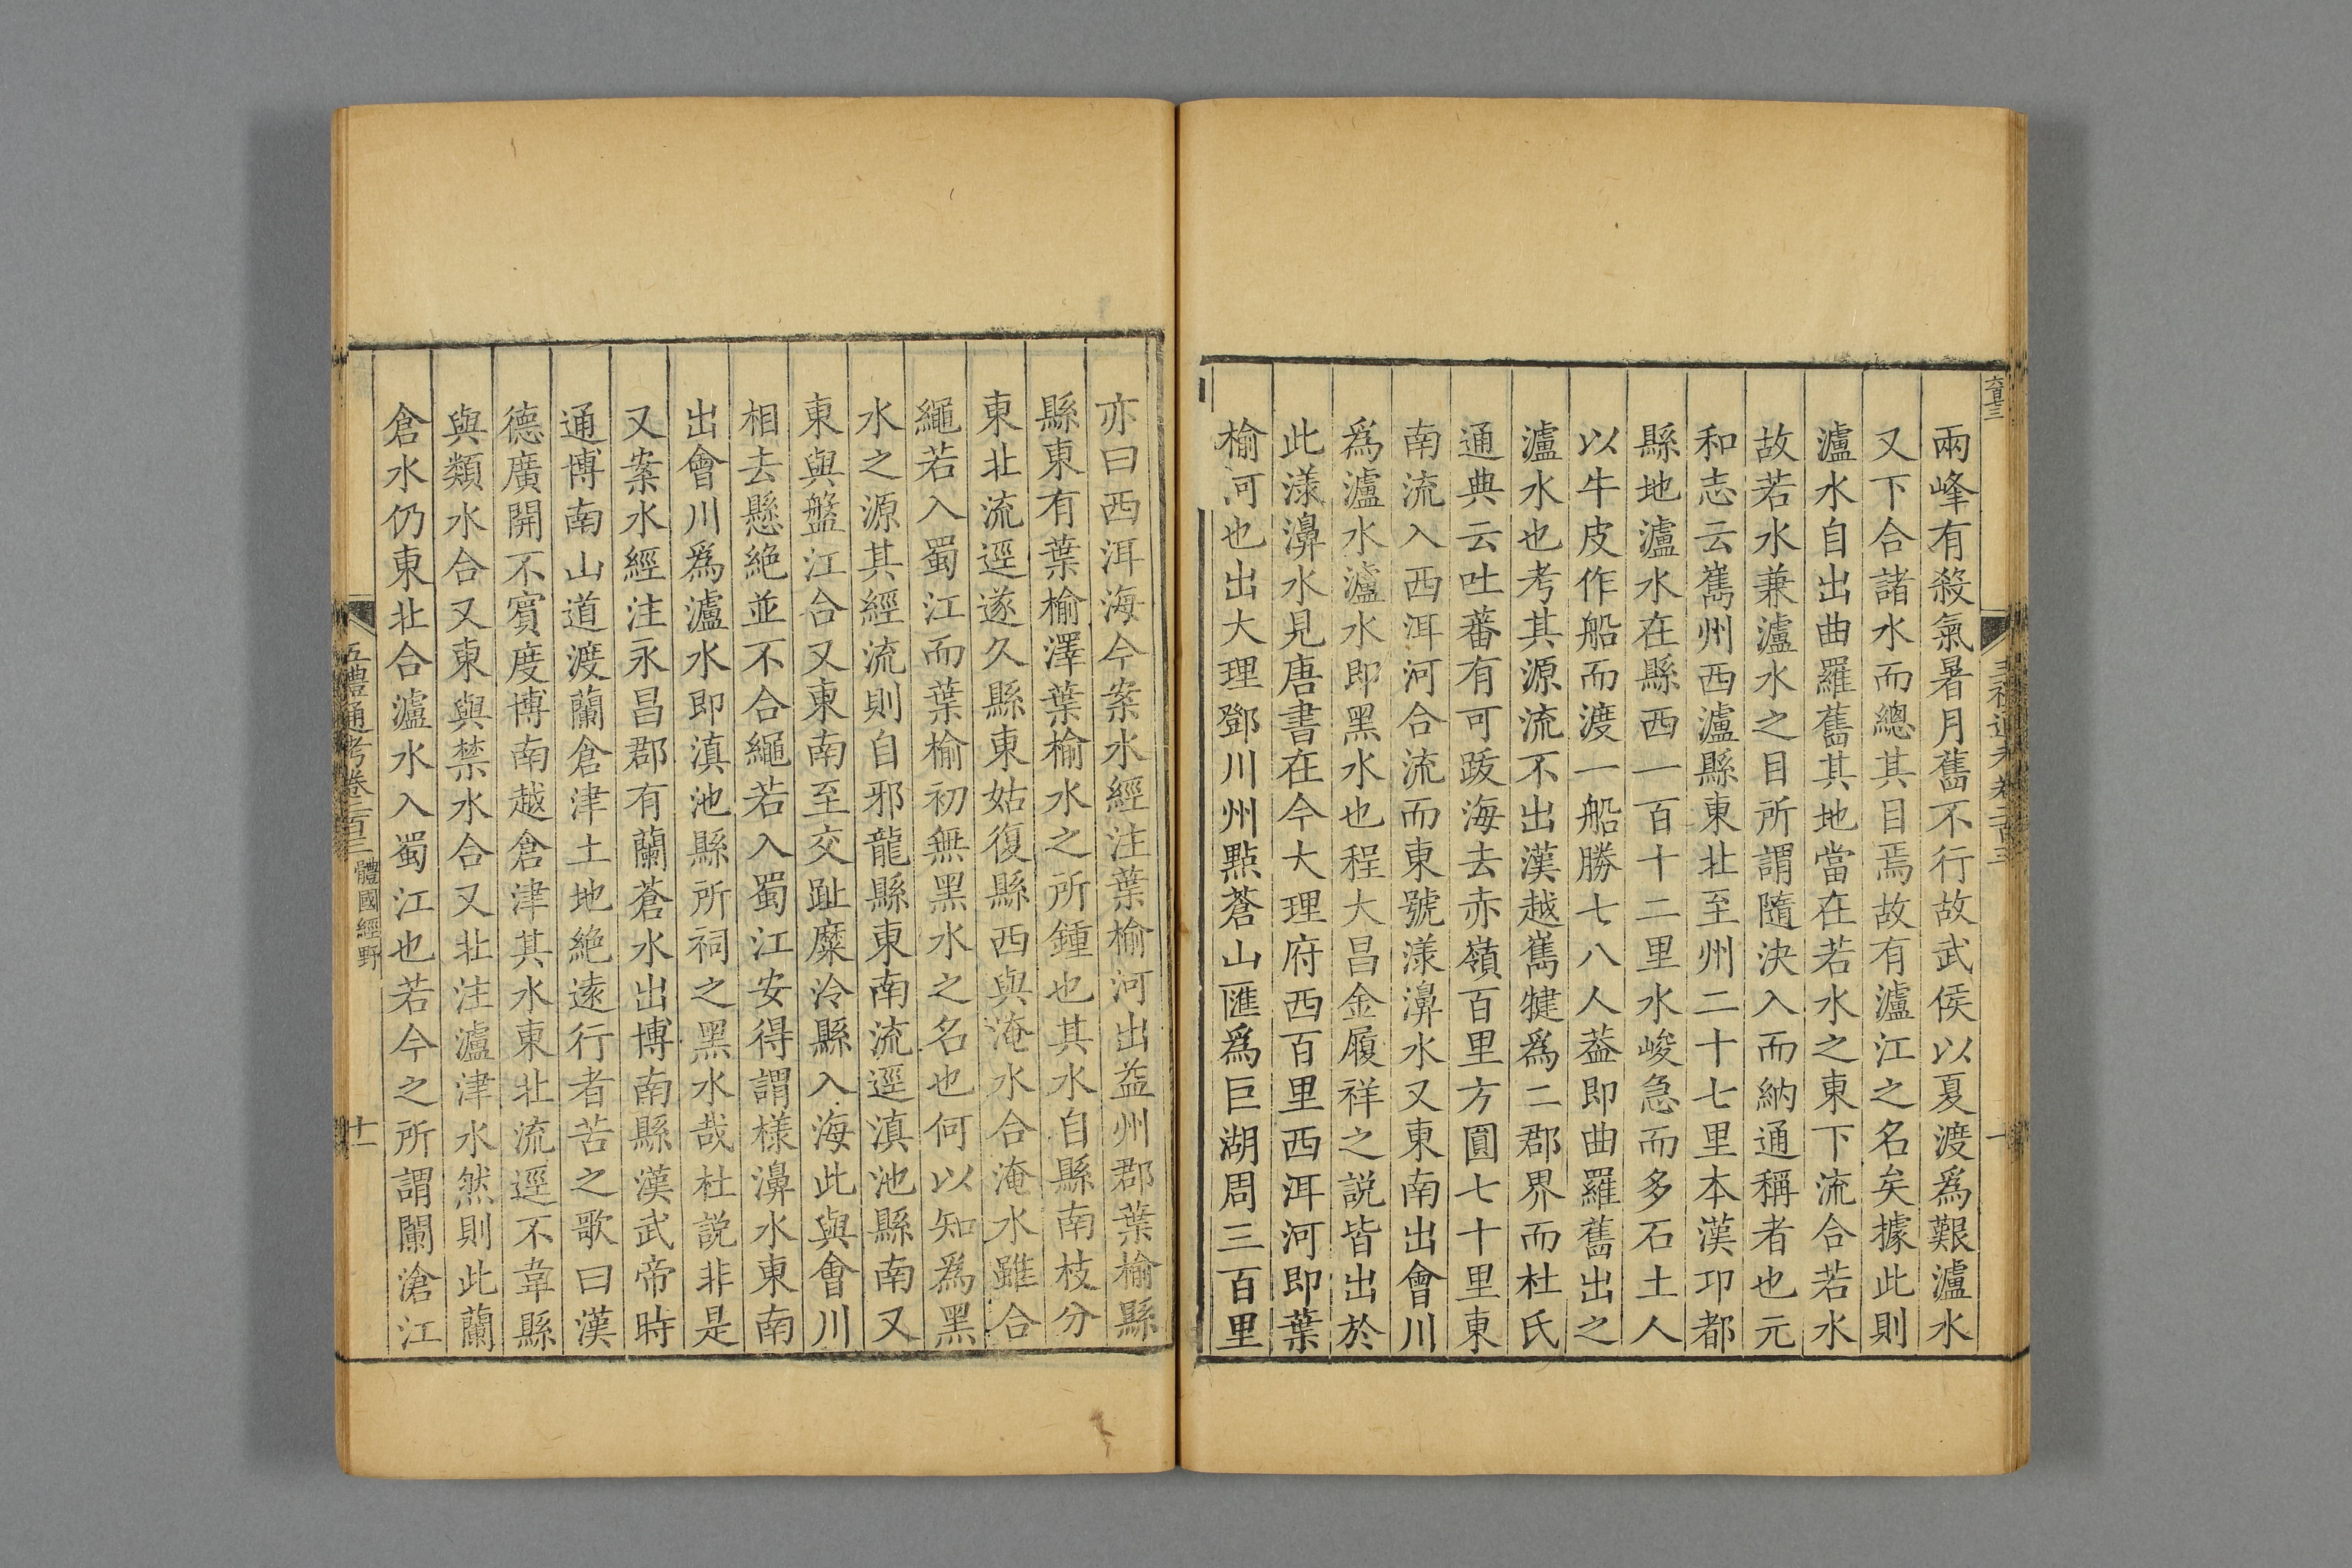 兩峰有殺氣暑月舊不行故武侯以夏渡爲艱瀘水
又下合諸水而總其目焉故有瀘江之名矣據此則
瀘水自出曲羅舊其地當在若水之東下流合若水
故若水兼瀘水之目所謂隨決入而納通稱者也元
和志云嶲州西瀘縣東北至州二十七里本漢邛都
縣地瀘水在縣西一百十二里水峻急而多石土人
以牛皮作船而渡一船勝七八人葢即曲羅舊出之
瀘水也考其源流不出漢越嶲犍爲二郡界而杜氏
通典云吐蕃有可跋海去赤嶺百里方圓七十里東
南流入西洱河合流而東號漾濞水又東南出會川
爲瀘水瀘水即黑水也程大昌金履祥之說皆出於
此漾濞水見唐書在今大理府西百里西洱河即葉
榆河也出大理鄧川州點蒼山匯爲巨湖周三百里
亦曰西洱海今案水經注葉榆河出益州郡葉榆縣
縣東有葉榆澤葉榆水之所鍾也其水自縣南枝分
東北流逕遂久縣東姑復縣西與淹水合淹水雖合
繩若入蜀江而葉榆初無黑水之名也何以知爲黑
水之源其經流則自邪龍縣東南流逕滇池縣南又
東與盤江合又東南至交趾糜泠縣入海此與會川
相去懸絶並不合繩若入蜀江安得謂樣濞水東南
出會川爲瀘水即滇池縣所祠之黑水哉杜說非是
又案水經注永昌郡有蘭蒼水出博南縣漢武帝時
通博南山道渡蘭倉津土地絶遠行者苦之歌曰漢
德廣開不賓度博南越倉津其水東北流逕不韋縣
與類水合又東與禁水合又北注瀘津水然則此蘭
倉水仍東北合瀘水入蜀江也若今之所謂闌滄江
五禮通考卷二百三
體國經野
十一